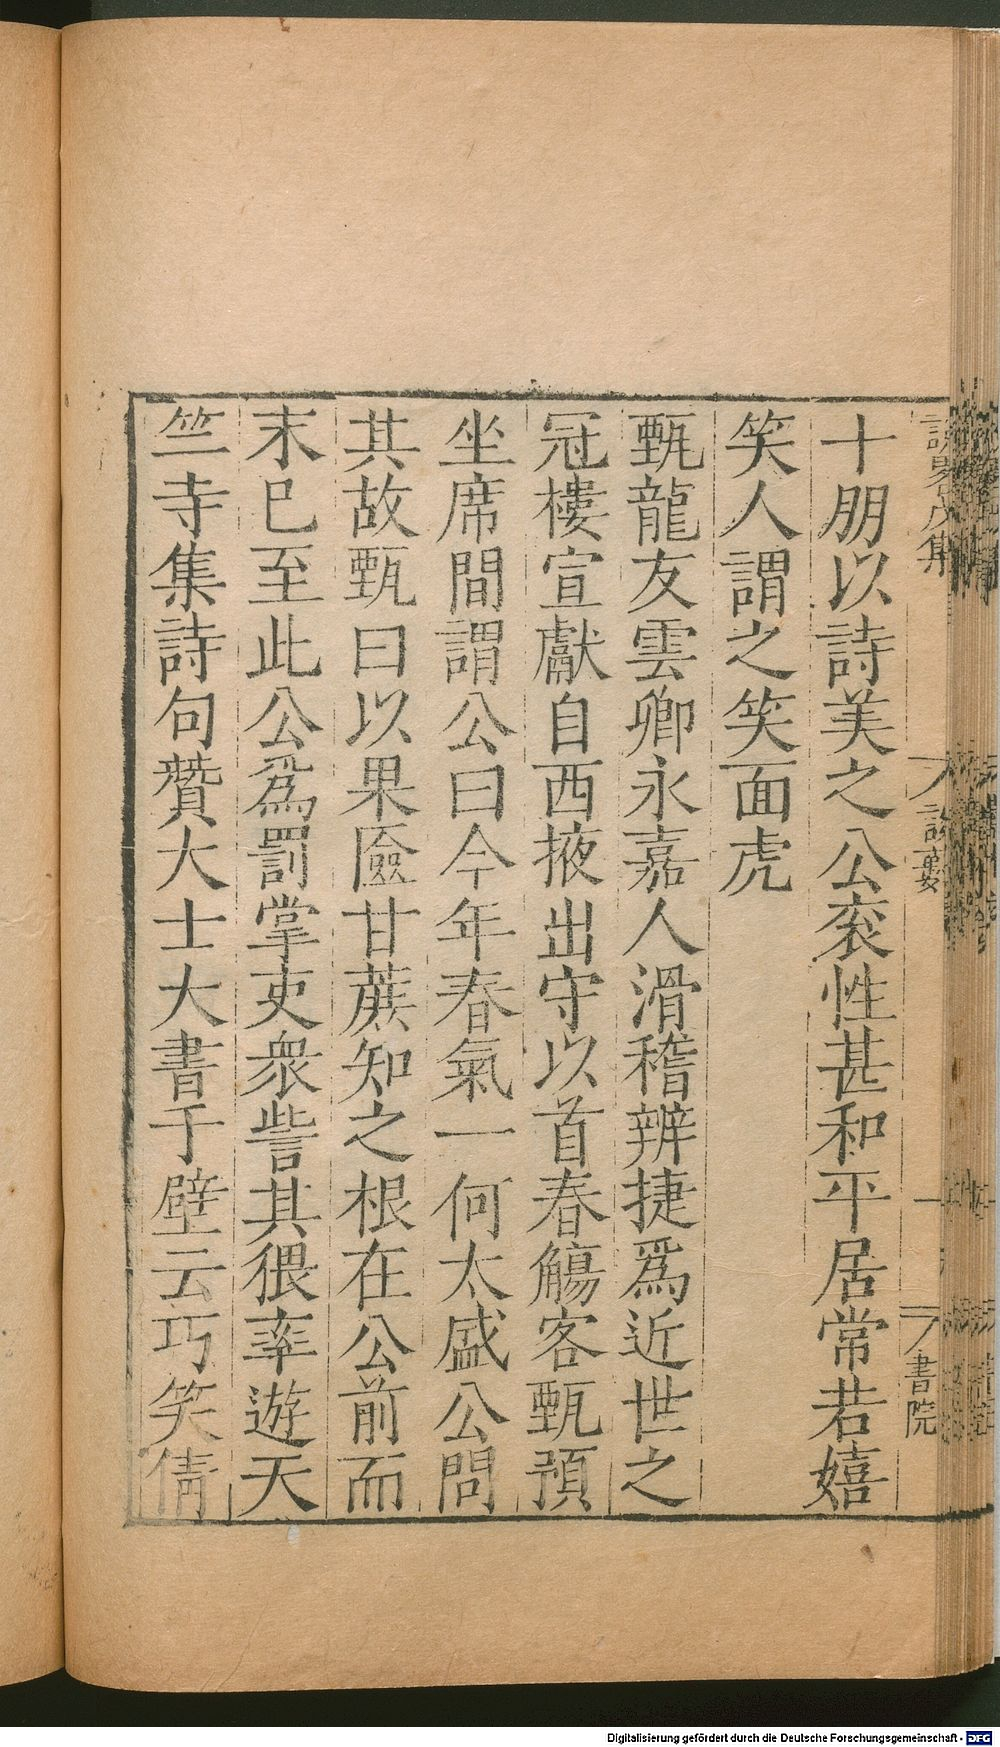 談藪
書院
十朋以詩美之公衮性甚和平居常若嬉
笑人謂之笑面虎
甄龍友雲卿永嘉人滑稽辨捷爲近世之
冠樓宣獻自西掖出守以首春觴客甄預
坐席間謂公曰今年春氣一何太盛公問
其故甄曰以果匳甘蔗知之根在公前而
末巳至此公爲罰掌吏衆訾其猥率遊天
竺寺集詩句贊大士大書于壁云巧笑倩
Digitalisierung gefördert durch die Deutsche Forschungsgemeinschaft - DFG